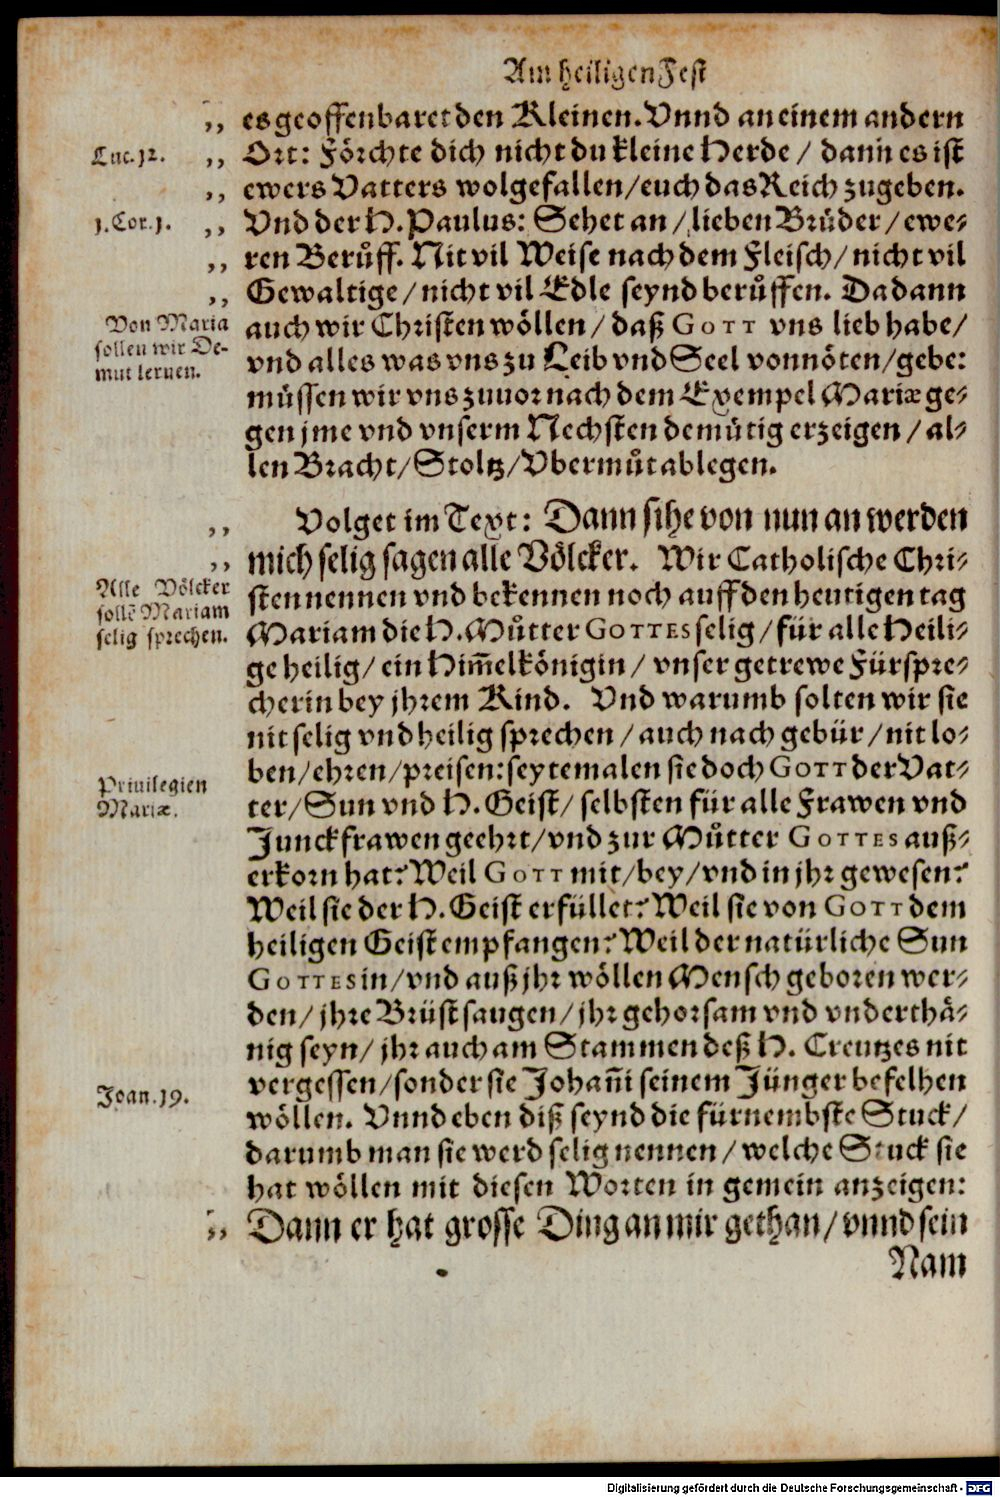 Am heiligen Fest
„ es geoffenbaret den Kleinen. Vnnd an einem andern
Luc. 12. „ Ort: Förchte dich nicht du kleine Herde / dann es ist
„ ewers Vatters wolgefallen / euch das Reich zugeben.
1. Cor. 1. „ Vnd der H. Paulus: Sehet an / lieben Brůder / ewe-
„ ren Berůff. Nit vil Weise nach dem Fleisch / nicht vil
„ Gewaltige / nicht vil Edle seynd berůffen. Da dann
Von Maria
sollen wir De-
mut lernen.
auch wir Christen wöllen / daß GOTT vns lieb habe /
vnd alles was vns zu Leib vnd Seel vonnöten / gebe:
müssen wir vns zuuor nach dem Exempel Mariæ ge-
gen jme vnd vnserm Nechsten demütig erzeigen / al-
len Bracht / Stoltz / Vbermůt ablegen.
„ Volget im Text: Dann sihe von nun an werden
„ mich selig sagen alle Völcker. Wir Catholische Chri-
Alle Völcker
sollē Mariam
selig sprechen.
sten nennen vnd bekennen noch auff den heutigen tag
Mariam die H. Můtter GOTTES selig / für alle Heili-
ge heilig / ein Him̄elkönigin / vnser getrewe Fürspre-
cherin bey jhrem Kind. Vnd warumb solten wir sie
nit selig vnd heilig sprechen / auch nach gebür / nit lo-
Priuilegien
Mariæ.
ben / ehren / preisen: seytemalen sie doch GOTT der Vat-
ter / Sun vnd H. Geist / selbsten für alle Frawen vnd
Junckfrawen geehrt / vnd zur Můtter GOTTES auß-
erkorn hat? Weil GOTT mit / bey / vnd in jhr gewesen?
Weil sie der H. Geist erfüllet? Weil sie von GOTT dem
heiligen Geist empfangen? Weil der natürliche Sun
GOTTES in / vnd auß jhr wöllen Mensch geboren wer-
den / jhre Brüst saugen / jhr gehorsam vnd vnderthä-
nig seyn / jhr auch am Stammen deß H. Creutzes nit
Joan. 19. vergessen / sonder sie Johan̄i seinem Jünger befelhen
wöllen. Vnnd eben diß seynd die fürnembste Stuck /
darumb man sie werd selig nennen / welche Stuck sie
hat wöllen mit diesen Worten in gemein anzeigen:
„ Dann er hat grosse Ding an mir gethan / vnnd sein
Nam
Digitalisierung gefördert durch die Deutsche Forschungsgemeinschaft - DFG